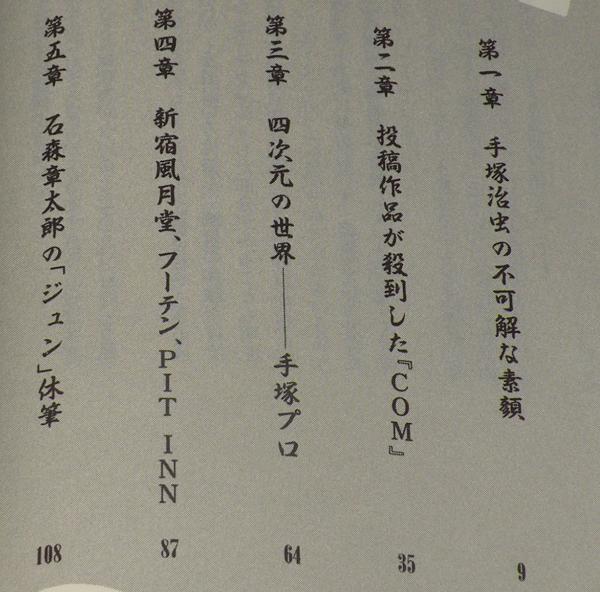 第一章 手塚治虫の不可解な素顔 9
第二章 投稿作品が殺到した『COM』 35
第三章 四次元の世界――手塚プロ 64
第四章 新宿風月堂、フーテン、PIT INN 87
第五章 石森章太郎の「ジュン」休筆 108